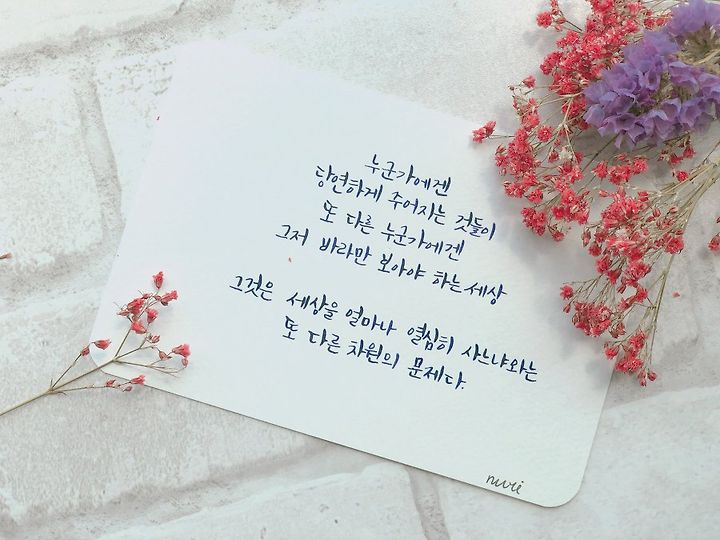 누군가에겐
당연하게 주어지는 것들이
또 다른 누군가에겐
그저 바라만 보아야 하는 세상
그것은 세상을 얼마나 열심히 사느냐와는
또 다른 차원의 문제다.
nuri